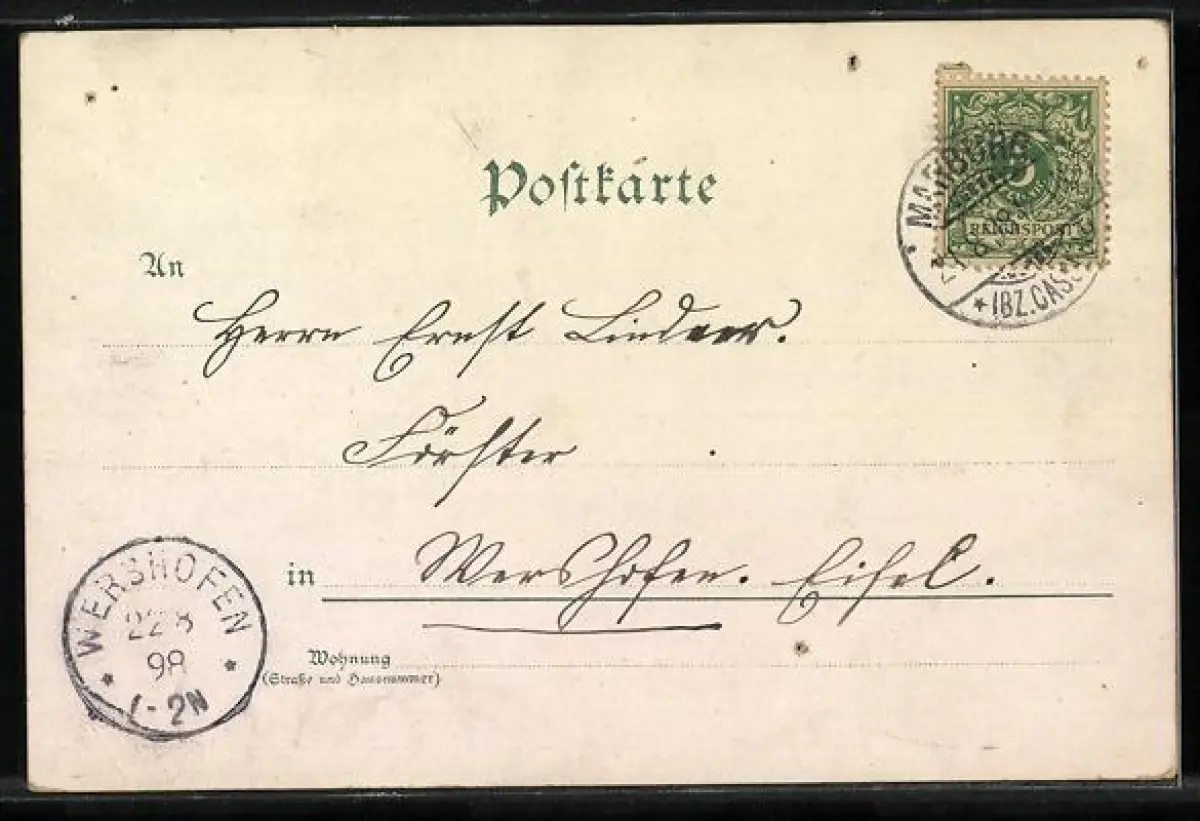 Postkarte
MARBURG
5
REICHSPOST
* (BZ. CASSEL
An
Herrn Ernst
Förster
in Wershofen. Eifel.
Wohnung
(Straße und Hausnummer)
WERSHOFEN
22 8
98
1-2N